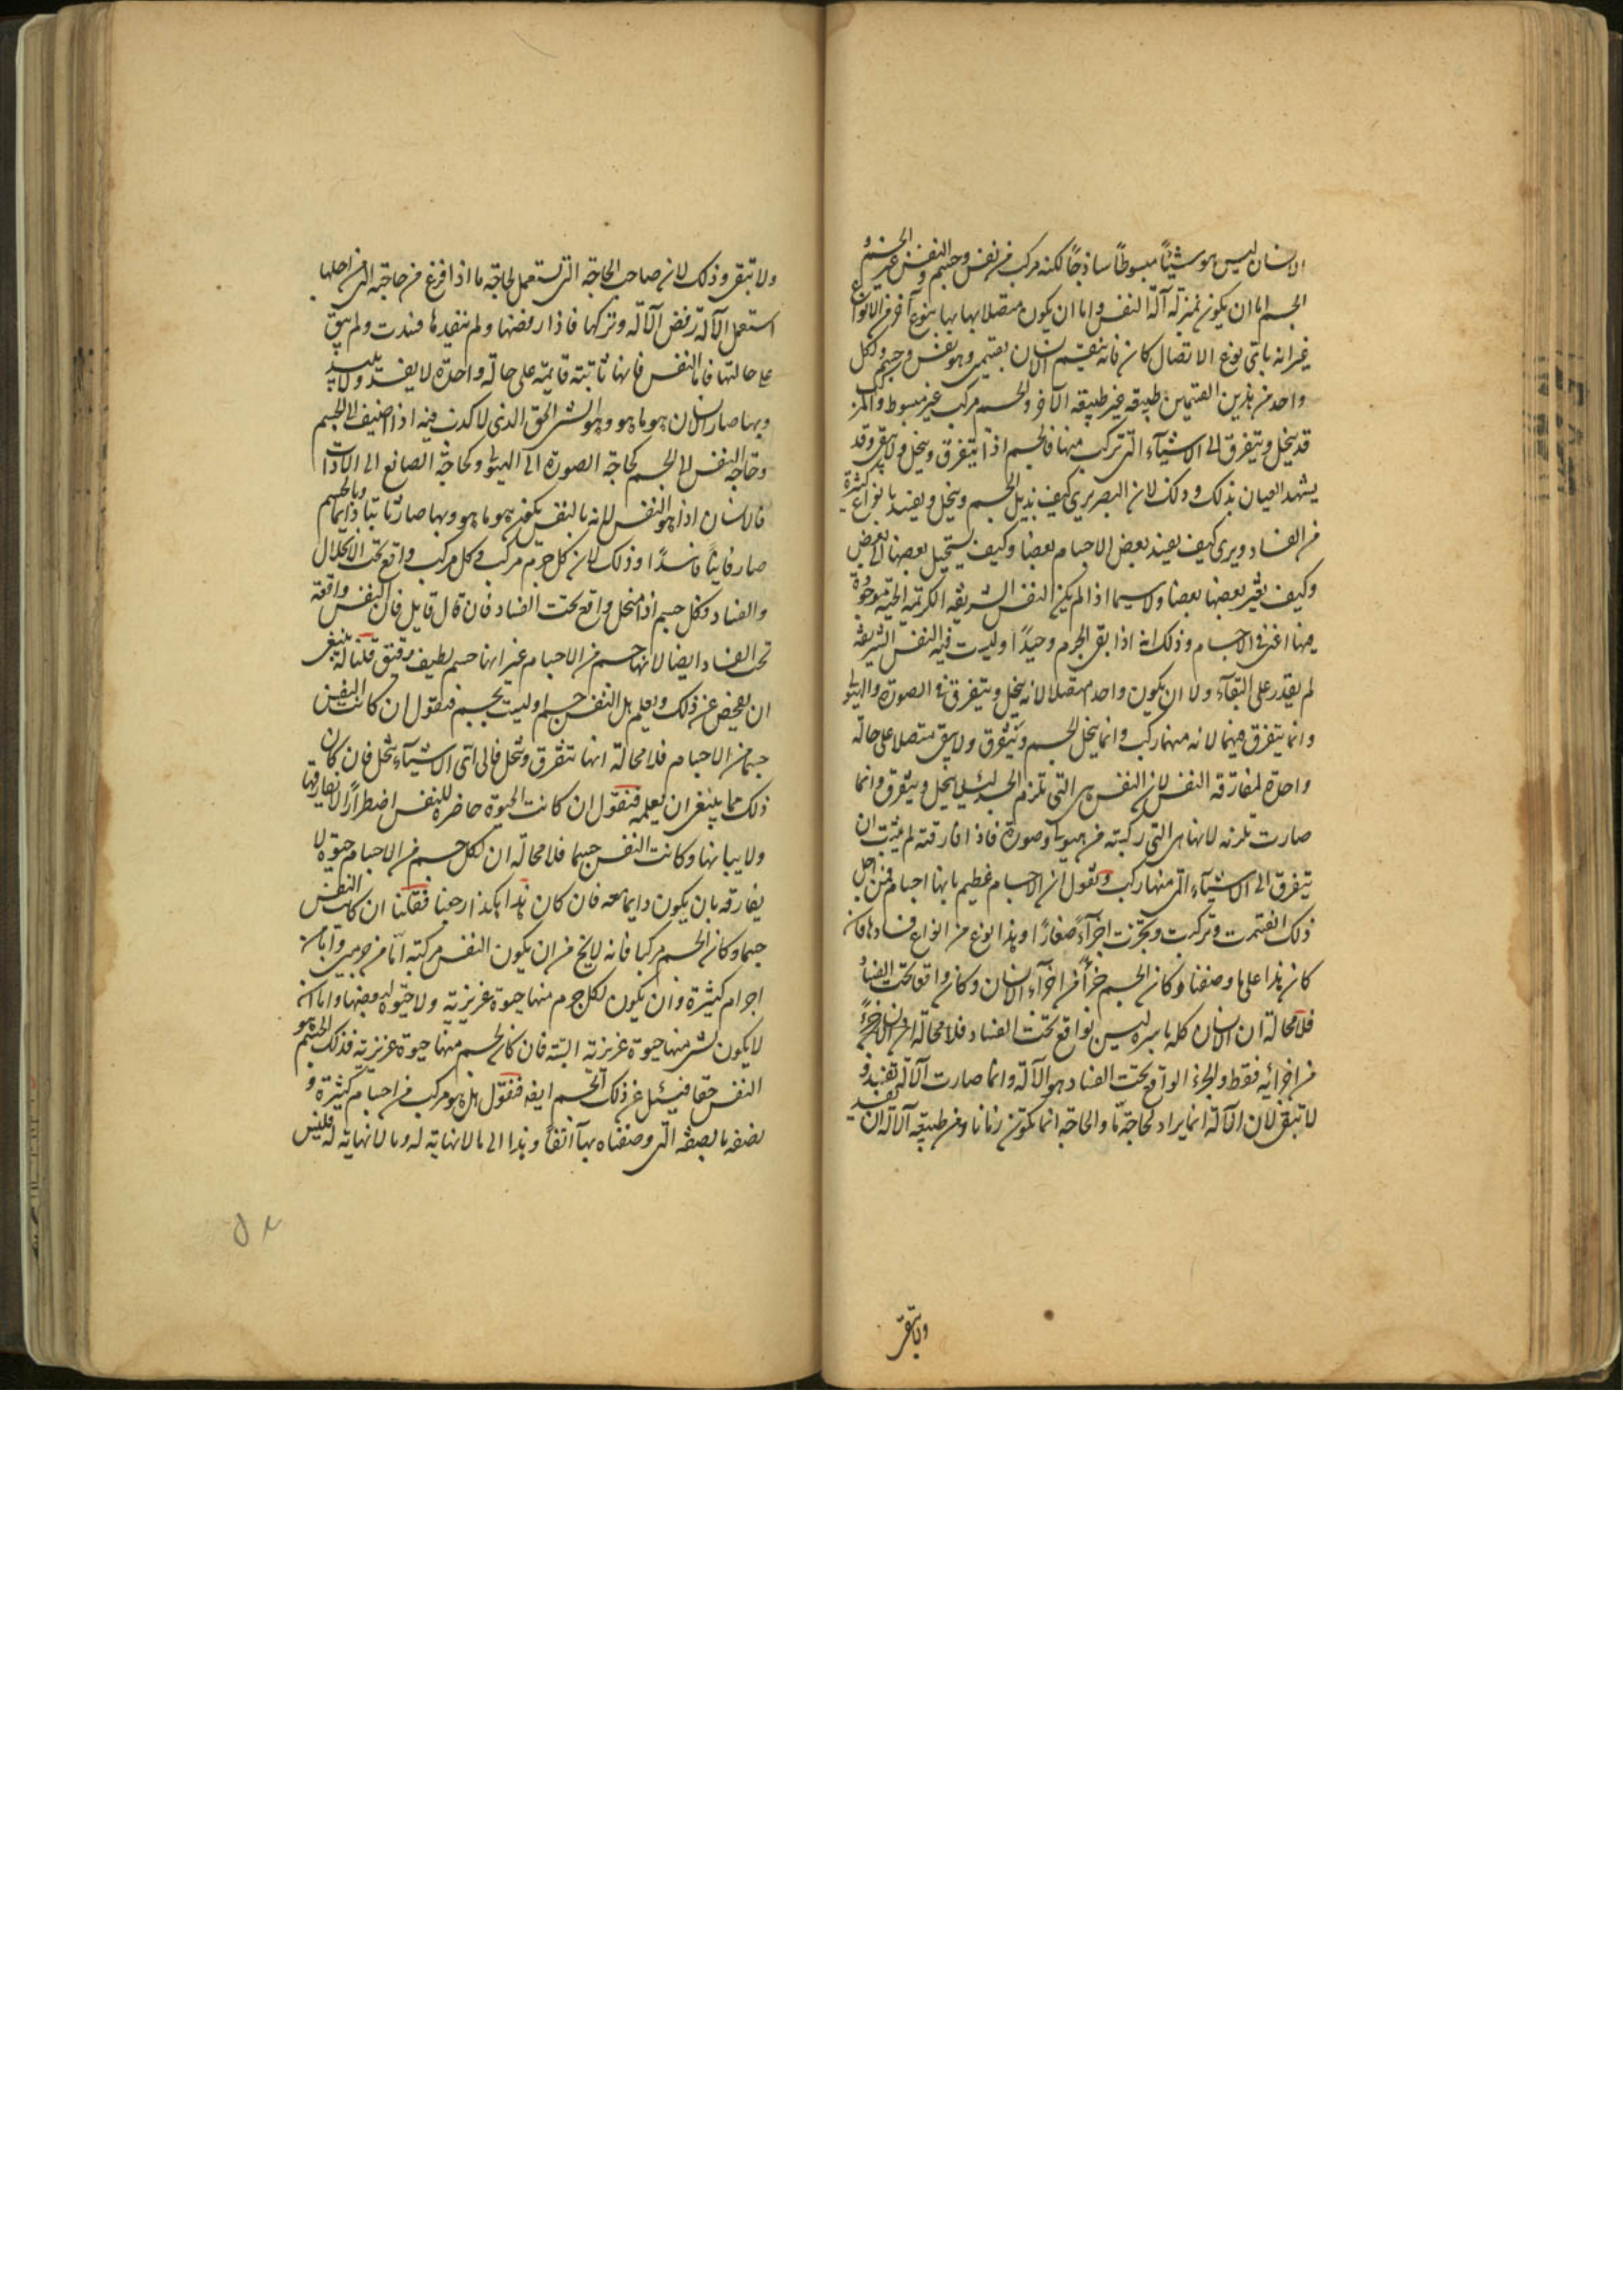 الانسان ليس هو شيئاً مبسوطاً ساذجاً لكنه مركب من نفس وجسم والنفس غير الجسم و
الجسم اما ان يكون بمنزلة آلة النفس واما ان يكون متصلا بها بنوع آخر من الانواع
غير انه باى نوع الاتصال كان فانه ينقسم الانسان بقسمين وهو نفس وجسم ولكل
واحد من هذين القسمين طبيعة غير طبيعة الآخر والجسم مركب غير مبسوط والمركب
قد ينحل ويتفرق الى الاشياء التى تركب منها فالجسم اذاً يتفرق وينحل ولا يبقى وقد
يشهد العيان بذلك وذلك لان البصر يرى كيف يذبل الجسم وينحل ويفسد بانواع كثيرة
من الفساد ويرى كيف يفسد بعض الاجسام بعضا وكيف يستحيل بعضها الى بعض
وكيف يغير بعضها بعضا ولا سيما اذا لم يكن النفس الشريفة الكريمة الحية موجودة
فيها اعنى فى الاجسام وذلك انه اذا بقى الجرم وحيداً وليست فيه النفس الشريفة
لم يقدر على البقاء ولا ان يكون واحدا متصلا لانه ينحل ويتفرق فى الصورة والهيولى
وانما يتفرق فيهما لانه منهما ركب وانما ينحل الجسم ويتفرق ولا يبقى متصلا على حاله
واحدة لمفارقة النفس لان النفس هى التى تلزم الجسد لئلا ينحل ويتفرق وانما
صارت تلزمه لانها هى التى ركبته من هيولى وصورة فاذا فارقته لم يلبث ان
يتفرق الى الاشياء التى منها ركب ونقول ان الاجسام عظيم بانها اجسام فمن اجل
ذلك انقسمت وتركبت وتجزئت اجزآءً صغارًا وهذا نوع من انواع فسادها فان
كان هذا على ما وصفنا وكان الجسم جزأً من اجزآء الانسان وكان واقعا تحت الفساد
فلا محالة ان الانسان كله باسره ليس بواقع تحت الفساد فلا محالة
من اجزائه فقط والجزء الواقع تحت الفساد هو الآلة وانما صارت الآلة تفسد و
لا تبقى لان الآلة انما يراد لحاجة مّا والحاجة انما تكون زمانا ومن طبيعة الآلة ان تفسد
ولا تبقى
ولا تبقى وذلك لان صاحب الحاجة التى تستعمل لحاجة ما اذا فرغ من حاجته التى من اجلها
استعمل الآلة رفض الآلة وتركها فاذا رفضها ولم يتفقدها فسدت ولم يبق
على حالتها فاما النفس فانها ثابتة قايمة على حالة واحدة لا يفسد ولا تبيد
وبها صار الانسان هو ما هو وهو الشئ الحق الذى لا كذب فيه اذا اضيف الى الجسم
وحاجة النفس الى الجسم كحاجة الصورة الى الهيولى وكحاجة الصانع الى الآداة
فالانسان اذاً هو النفس لانه بالنفس يكون هو ما هو وبها صار ثابتا دائما وبالجسم
صار فانياً فاسدًا وذلك لان كل جرم مركب وكل مركب واقع تحت الانحلال
والفساد وكل جسم اذاً منحل واقع تحت الفساد فان قال قايل فان النفس واقعة
تحت الفساد ايضا لانها جسم من الاجسام غير انها جسم لطيف رقيق قلنا له ينبغى
ان نفحص عن ذلك ونعلم هل النفس جسم او ليست بجسم فنقول ان كانت النفس
جسما من الاجسام فلا محالة انها تتفرق وتنحل فالى اى الاشياء تنحل فان كان
ذلك مما ينبغى ان نعلمه فنقول ان كانت الحيوة حاضرة للنفس اضطرارًا لا تفارقها
ولا يباينها وكانت النفس جسما فلا محالة ان لكل جسم من الاجسام حيوة لا
يفارقه بان يكون دايما معه فان كان هذا هكذا رجعنا فقلنا ان كانت النفس
جسما وكان الجسم مركبا فانه لا يخ من ان يكون النفس مركبة امّا من جرمين واما من
اجرام كثيرة وان يكون لكل جرم منها حيوة غريزية ولا حيوة لبعضها واما ان
لا يكون لشئ منها حيوة غريزية البتة فان كان لجسم منها حيوة غريزية فذلك الجسم هو
النفس حقا فنسئل عن ذلك الجسم ايضا فنقول هل هو مركب من اجسام كثيرة و
نصفه بالصفة التى وصفناه بها آنفاً وهذا الى ما لا نهاية له وما لا نهاية له فليس